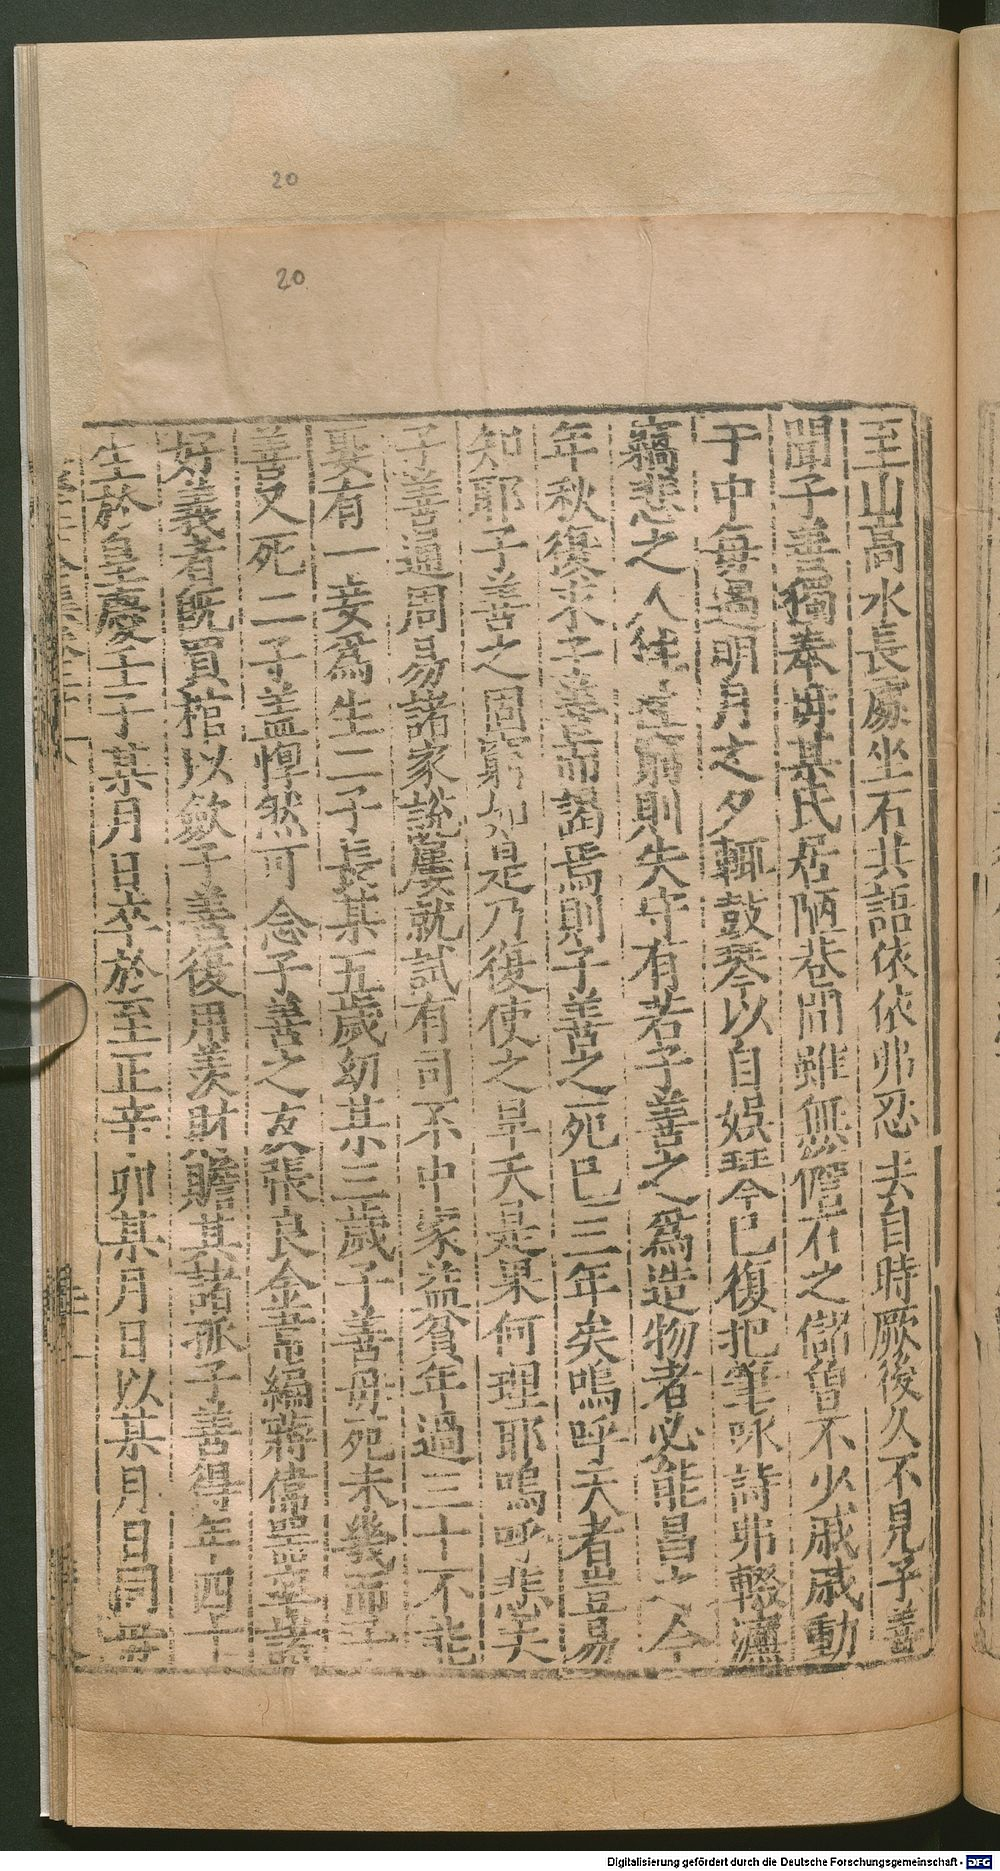 20
20
至山高水長處坐石共語依依弗忍去自時厥後久不見子善
聞子善獨奉母某氏居陋巷間雖無儋石之儲曾不少戚戚動
于中每遇明月之夕輒鼓琴以自娛琴已復把筆咏詩弗輟濂
竊悲之人徃徃窮則失守有若子善之為造物者必能昌之今
年秋復来子善而謁焉則子善之死已三年矣嗚呼天者豈易
知耶子善之固窮如是乃復使之早夭是果何理耶嗚呼悲夫
子善通周易諸家說屢就試有司不中家益貧年過三十不能
娶有一妾為生二子長某五歲幼某三歲子善母死未幾而子
善又死二子盖惸然可念子善之友張良金 編蔣偉器率諸
好義者旣買棺以斂子善復用羨財贍其諸孤子善得年四十
生於皇慶壬子某月日卒於至正辛卯某月日以某月日同母
Digitalisierung gefördert durch die Deutsche Forschungsgemeinschaft - DFG